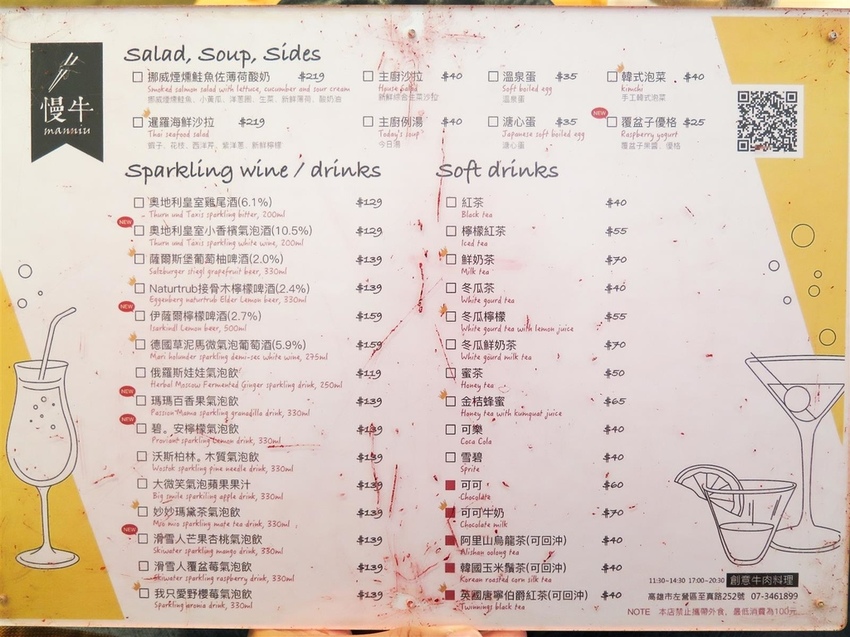 慢牛
manniu
Salad, Soup, Sides
挪威煙燻鮭魚佐薄荷酸奶 $219
Smoked salmon salad with lettuce, cucumber and sour cream
挪威煙燻鮭魚、小黃瓜、洋蔥圈、生菜、新鮮薄荷、酸奶油
主廚沙拉 $40
House salad
新鮮綜合生菜沙拉
溫泉蛋 $35
Soft boiled egg
溫泉蛋
韓式泡菜 $40
kimchi
手工韓式泡菜
暹羅海鮮沙拉 $219
Thai seafood salad
蝦子、花枝、西洋芹、紫洋蔥、新鮮檸檬
主廚例湯 $40
Today's soup
今日湯
溏心蛋 $35
Japanese soft boiled egg
溏心蛋
NEW
覆盆子優格 $25
Raspberry yogurt
覆盆子果醬、優格
Sparkling wine / drinks
奧地利皇室雞尾酒(6.1%) $129
Thurn und Taxis sparkling bitter, 200ml
NEW
奧地利皇室小香檳氣泡酒(10.5%) $129
Thurn und Taxis sparkling white wine, 200ml
薩爾斯堡葡萄柚啤酒(2.0%) $139
Salzburger stiegl grapefruit beer, 330ml
Naturtrub接骨木檸檬啤酒(2.4%) $139
Eggenberg naturtrub Elder Lemon beer, 330ml
NEW
伊薩爾檸檬啤酒(2.7%) $159
Isarkindl Lemon beer, 500ml
德國草泥馬微氣泡葡萄酒(5.9%) $159
Mari holunder sparkling demi-sec white wine, 275ml
俄羅斯娃娃氣泡飲 $119
Herbal Moscow Fermented Ginger sparkling drink, 250ml
NEW
瑪瑪百香果氣泡飲 $139
Passion Mama sparkling granadilla drink, 330ml
NEW
碧。安檸檬氣泡飲 $139
Proviant sparkling Lemon drink, 330ml
沃斯柏林。木質氣泡飲 $139
Wostok sparkling pine needle drink, 330ml
大微笑氣泡蘋果果汁 $139
Big smile sparkiling apple drink, 330ml
妙妙瑪黛茶氣泡飲 $139
Mio mio sparkling mate tea drink, 330ml
NEW
滑雪人芒果杏桃氣泡飲 $139
Skiwater sparkling mango drink, 330ml
滑雪人覆盆莓氣泡飲 $139
Skiwater sparkling raspberry drink, 330ml
我只愛野櫻莓氣泡飲 $139
Sparkling aronia drink, 330ml
Soft drinks
紅茶 $40
Black tea
檸檬紅茶 $55
Iced tea
鮮奶茶 $70
Milk tea
冬瓜茶 $40
White gourd tea
冬瓜檸檬 $55
White gourd tea with lemon juice
冬瓜鮮奶茶 $70
White gourd milk tea
蜜茶 $50
Honey tea
金桔蜂蜜 $65
Honey tea with kumquat juice
可樂 $40
Coca Cola
雪碧 $40
Sprite
可可 $60
Chocolate
可可牛奶 $70
Chocolate milk
阿里山烏龍茶(可回沖) $40
Alishan oolong tea
韓國玉米鬚茶(可回沖) $40
Korean roasted corn silk tea
英國唐寧伯爵紅茶(可回沖) $40
Twinnings black tea
11:30~14:30 17:00~20:30 創意牛肉料理
高雄市左營區至真路252號 07-3461899
NOTE 本店禁止攜帶外食, 最低消費為100元